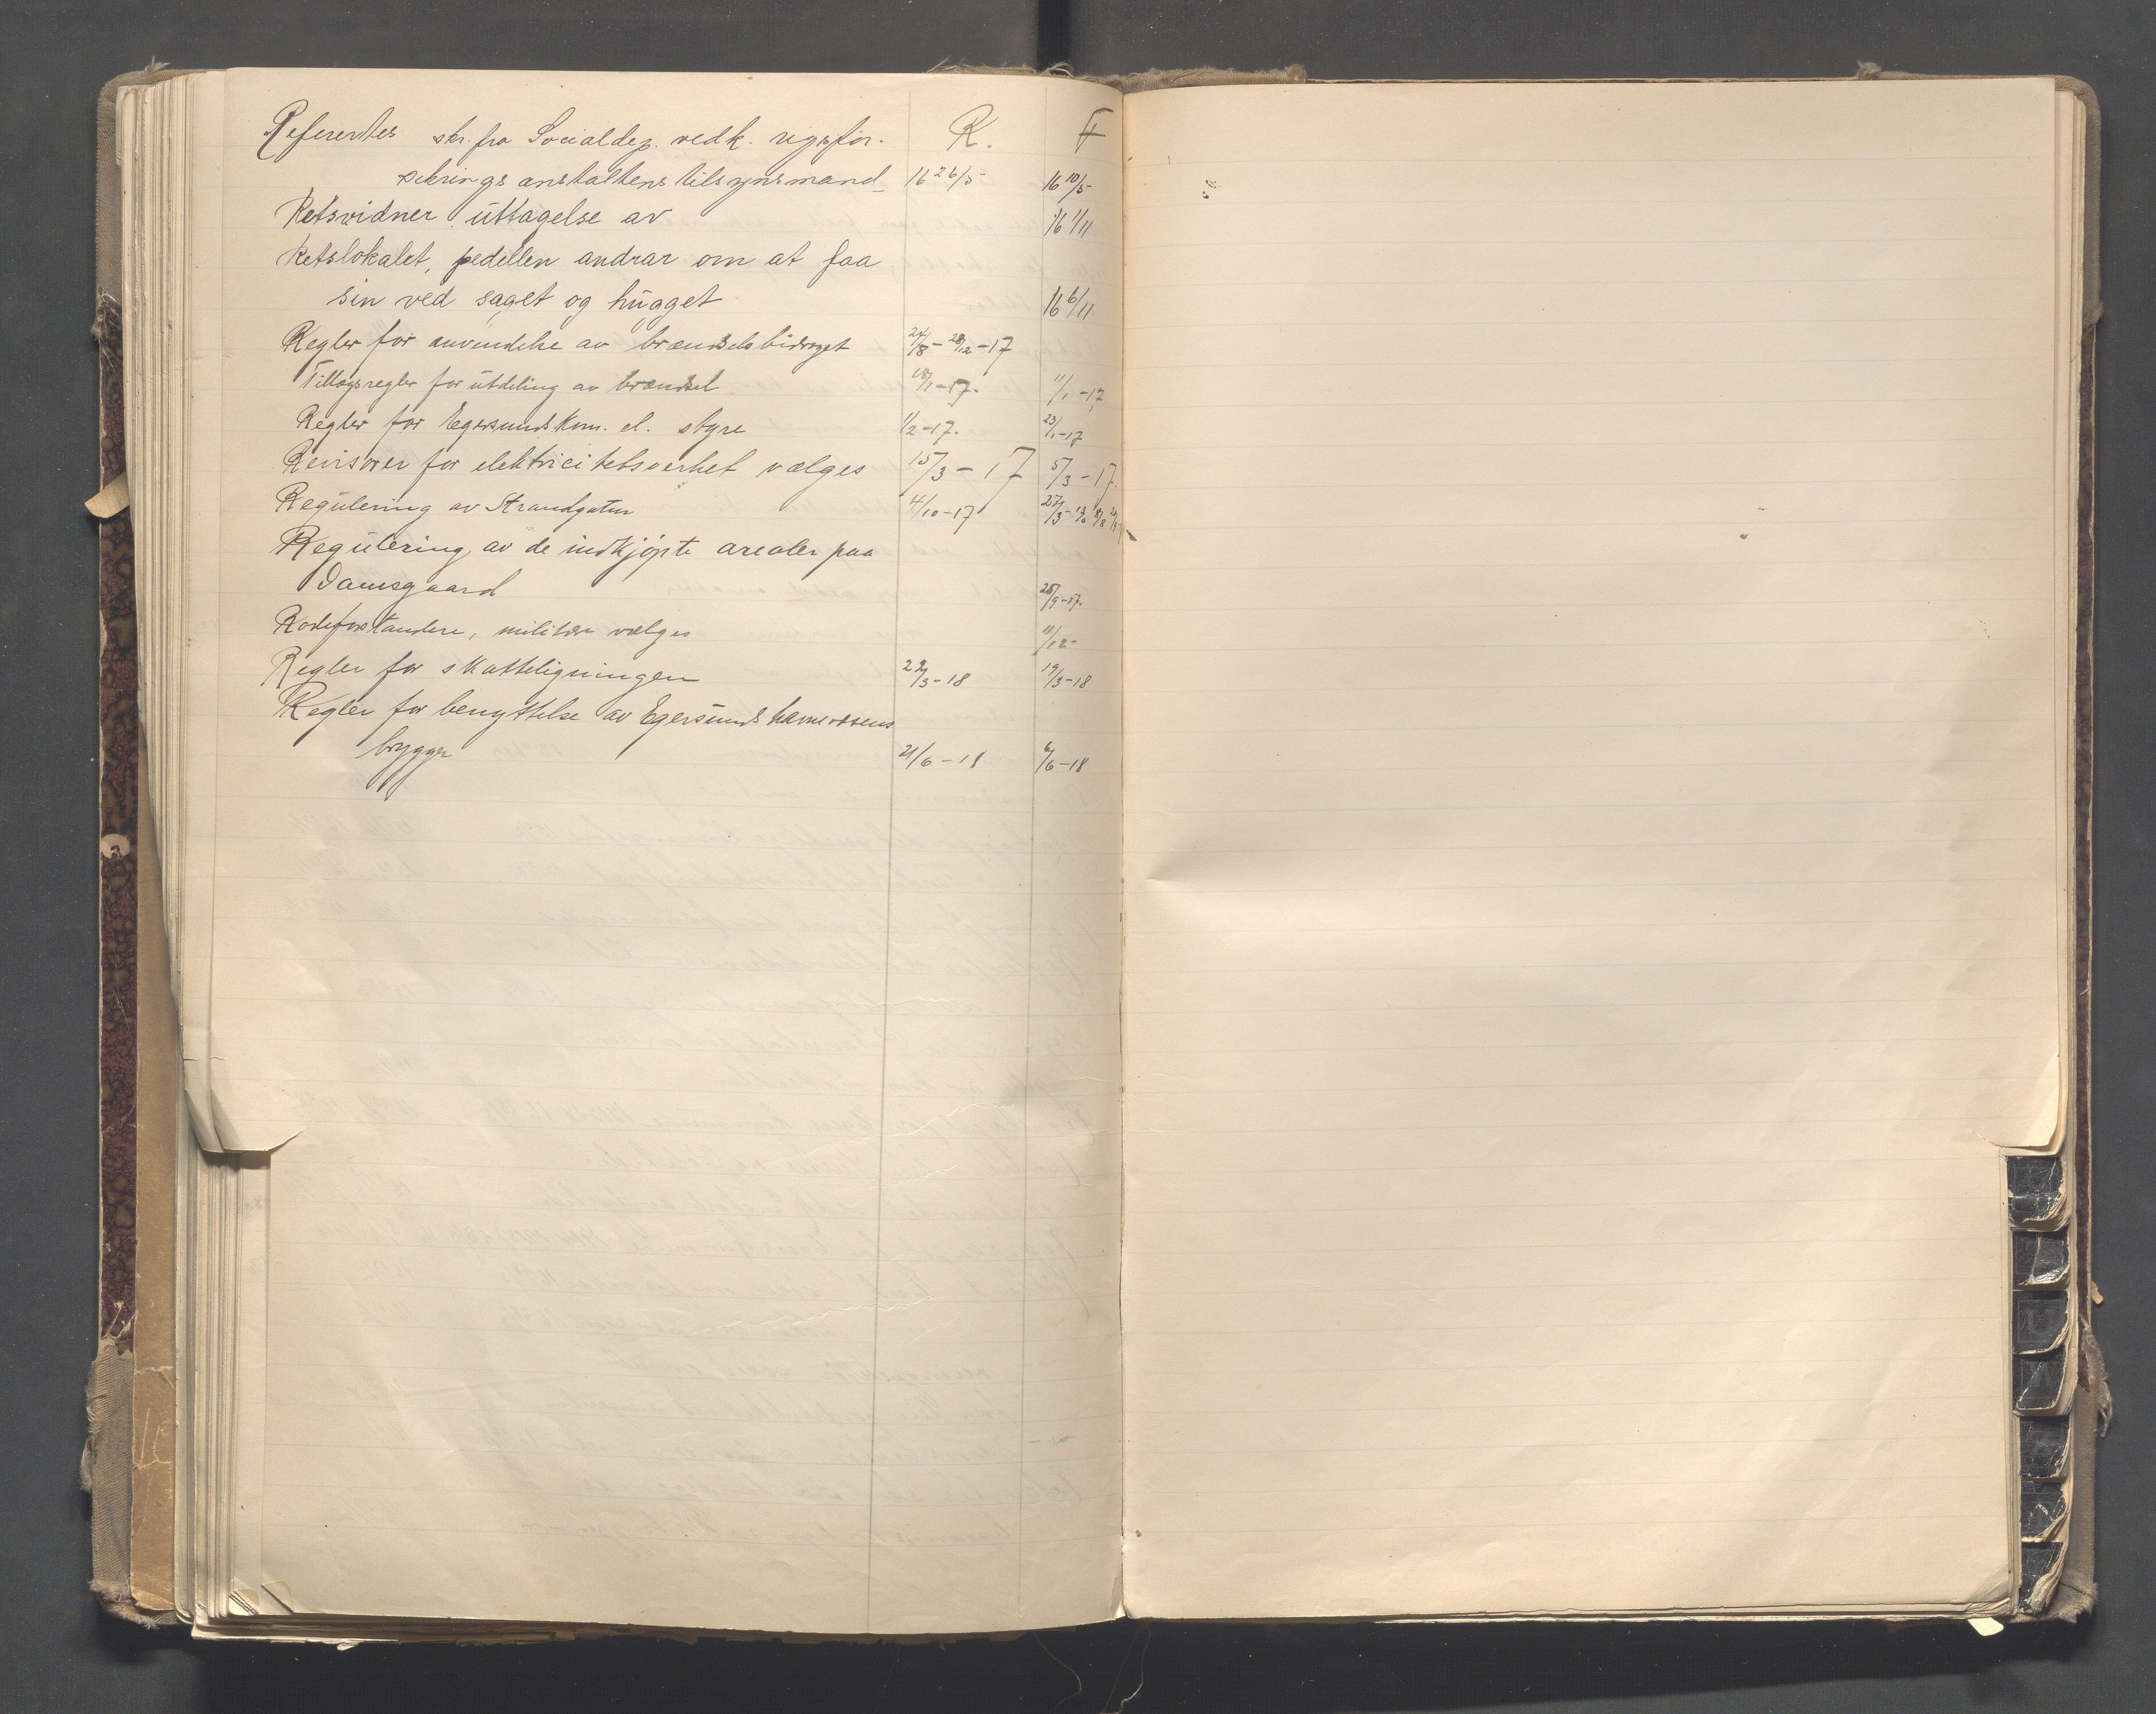 Referertes skr. fra Socialdep. vedk. rigsfor- R. F
sikringsanstaltens tilsynsmand 16 26/5 16 10/5
Retsvidner uttagelse av 16 1/11
Retslokalet, pedellen andrar om at faa
sin ved saget og hugget 16 6/11
Regler for anvendelse av brændselsbidraget 24/8 - 28/12 - 17
Tillægsregler for utdeling av brændsel 18/1 - 17. 11/1 - 17
Regler for Egersunds kom. el. styre 1/2 - 17. 23/1 - 17
Revisorer for elektricitetsverket vælges 15/3 - 17 5/3 - 17.
Regulering av Strandgaten 4/10 - 17 27/3
Regulering av de indkjøpte arealer paa
Damsgaard 28/9 - 17.
Rodeforstandere, militære vælges 11/12 -
Regler for skatteligningen 22/3 - 18 19/3 - 18
Regler for benyttelse av Egersunds havnevæsens
brygger 21/6 - 18 6/6 - 18